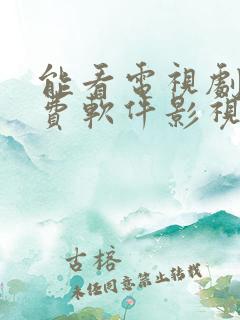 能看電視劇
費軟件影視
古榕
未經同意禁止轉載